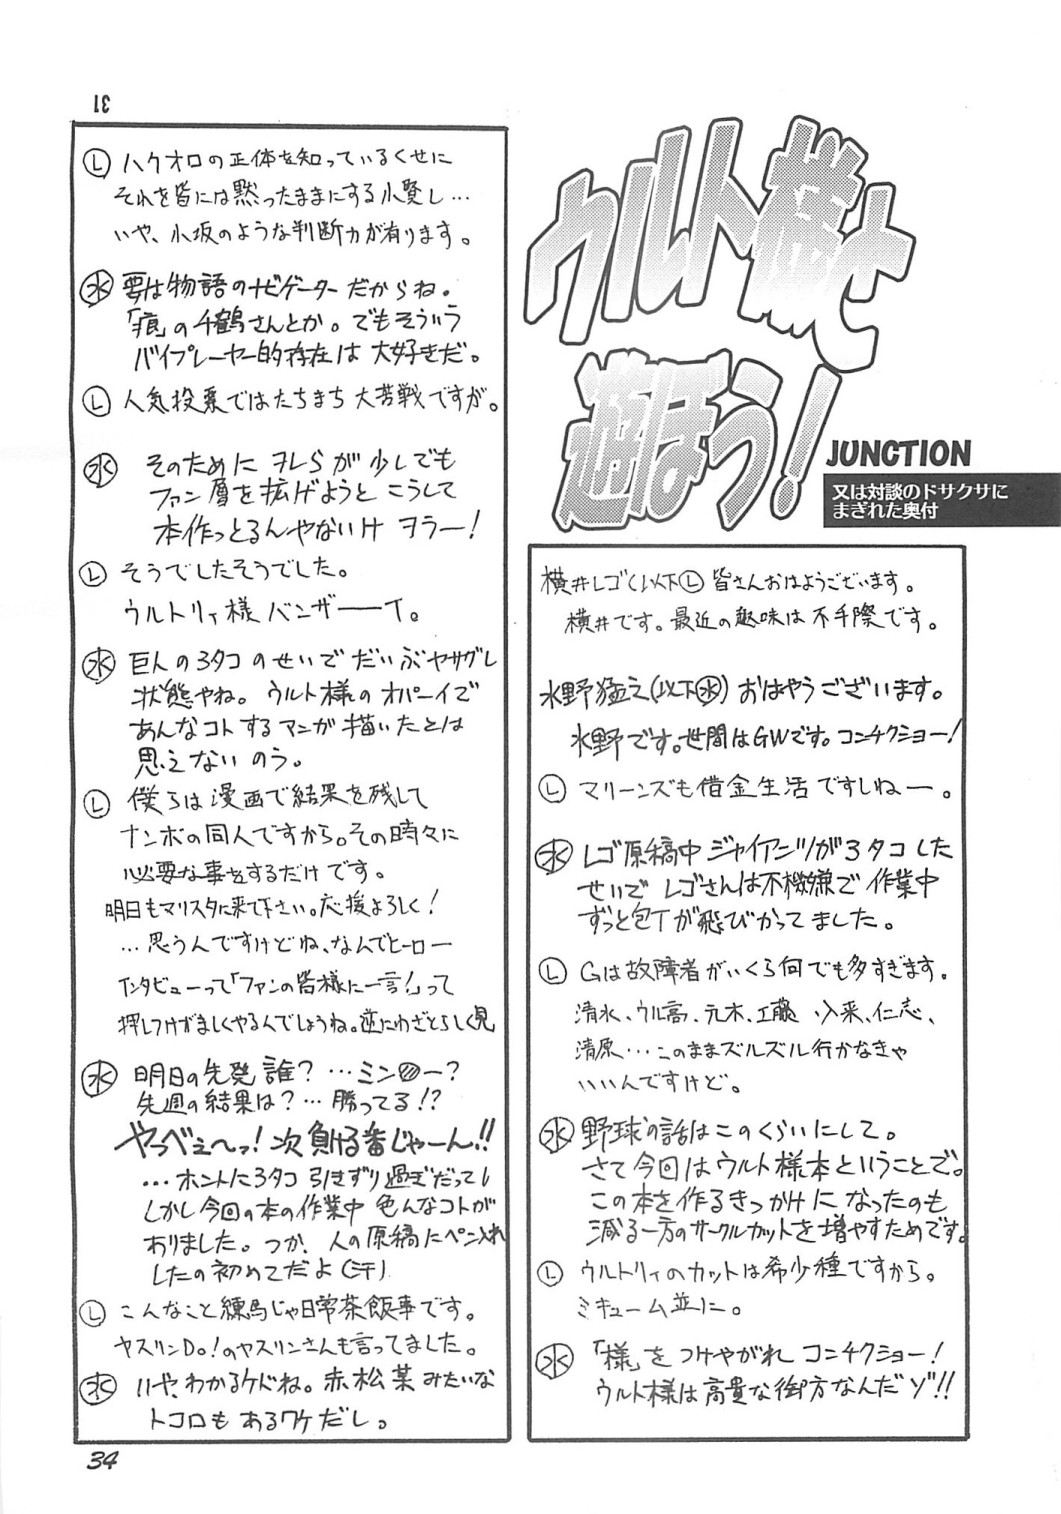 ウルト様と
遊ぼう!
JUNCTION
又は対談のドサクサに
まぎれた奥付
横井レゴ(以下Ⓛ 皆さんおはようございます。
横井です。最近の趣味は不手際です。
水野猛之(以下㊌) おはやうございます。
水野です。世間はGWです。コンチクショー!
Ⓛ マリーンズも借金生活ですしねー。
㊌ レゴ原稿中ジャイアンツが3タコした
せいでレゴさんは不機嫌で作業中
ずっと包丁が飛びかってました。
Ⓛ Gは故障者がいくら何でも多すぎます。
清水、ウル高、元木、工藤 入来、仁志、
清原…このままズルズル行かなきゃ
いいんですけど。
㊌ 野球の話はこのくらいにして。
さて今回はウルト様本ということで。
この本を作るきっかけになったのも
減る一方のサークルカットを増やすためです。
Ⓛ ウルトリィのカットは希少種ですから。
ミキューム並に。
㊌ 「様」をつけやがれコンチクショー!
ウルト様は高貴な御方なんだゾ!!
31
Ⓛ ハクオロの正体を知っているくせに
それを皆には黙ったままにする小賢し…
いや、小坂のような判断力が有ります。
㊌ 要は物語のナビゲーターだからね。
「痕」の千鶴さんとか。でもそういう
バイプレーヤー的存在は大好きだ。
Ⓛ 人気投票ではたちまち大苦戦ですが。
㊌ そのためにヲレらが少しでも
ファン層を拡げようとこうして
本作っとるんやないけヲラー!
Ⓛ そうでしたそうでした。
ウルトリィ様バンザーーイ。
㊌ 巨人の3タコのせいでだいぶヤサグレ
状態やね。ウルト様のオパーイで
あんなコトするマンガ描いたとは
思えないのう。
Ⓛ 僕らは漫画で結果を残して
ナンボの同人ですから。その時々に
必要な事をするだけです。
明日もマリスタに来て下さい。応援よろしく!
…思うんですけどね、なんでヒーロー
インタビューって「ファンの皆様に一言!」って
押しつけがましくやるんでしょうね。逆にわざとらしく見
㊌ 明日の先発誰?…ミン〇ー?
先週の結果は?…勝ってる!?
やっべぇ〜っ!次負ける番じゃーん!!
…ホントに3タコ引きずり過ぎだってし
しかし今回の本の作業中色んなコトが
ありました。つか、人の原稿にペン入れ
したの初めてだよ(汗)
Ⓛ こんなこと練馬じゃ日常茶飯事です。
ヤスリンDo!のヤスリンさんも言ってました。
㊌ いや、わかるケドね。赤松葉みたいな
トコロもあるワケだし。
34